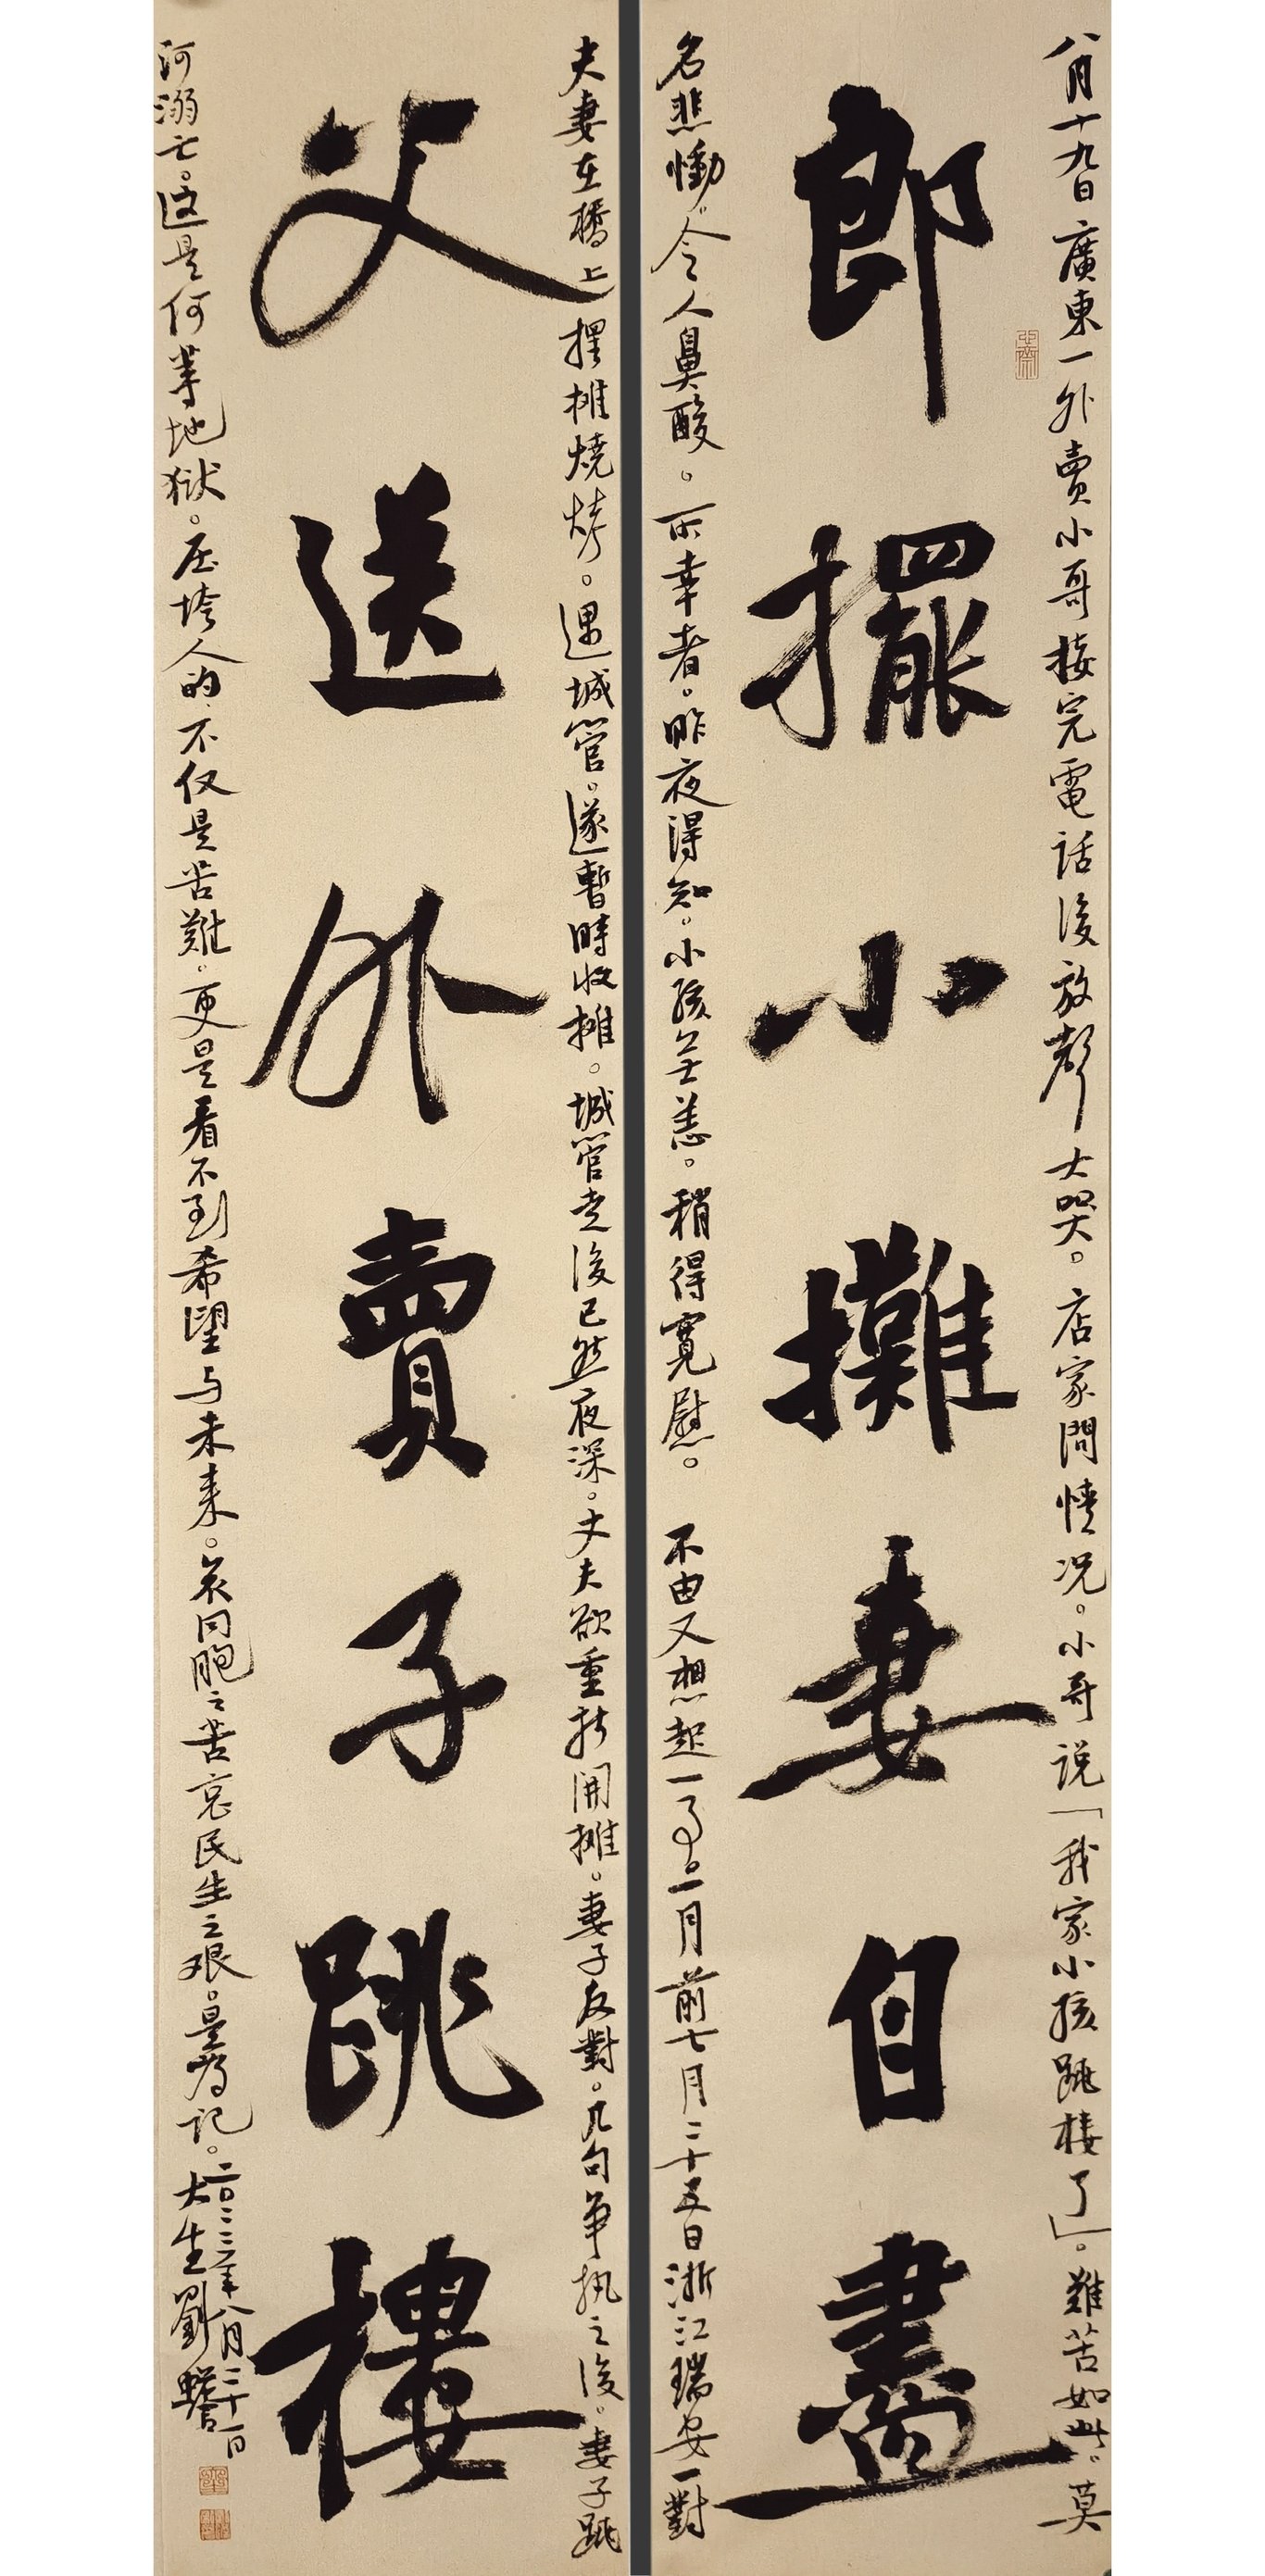 八月十九日廣東一外賣小哥接完電話後放聲大哭。店家問情况。小哥说「我家小孩跳楼了」。難苦如此。莫
郎擺小攤妻自盡
名悲慟。令人鼻酸。所幸者。昨夜得知。小孩无恙。稍得寬慰。不由又想起一事。一月前七月二十五日浙江瑞安一對
夫妻在橋上摆摊燒烤。遇城管。遂暫時收摊。城管走後已然夜深。丈夫欲重新開摊。妻子反對。几句争执之後。妻子跳
父送外賣子跳樓
河溺亡。这是何等地狱。压垮人的不仅是苦難。更是看不到希望与未来。哀同胞之苦哀民生之艰。是為记。
二〇二三年八月二十一日
大生劉蟾